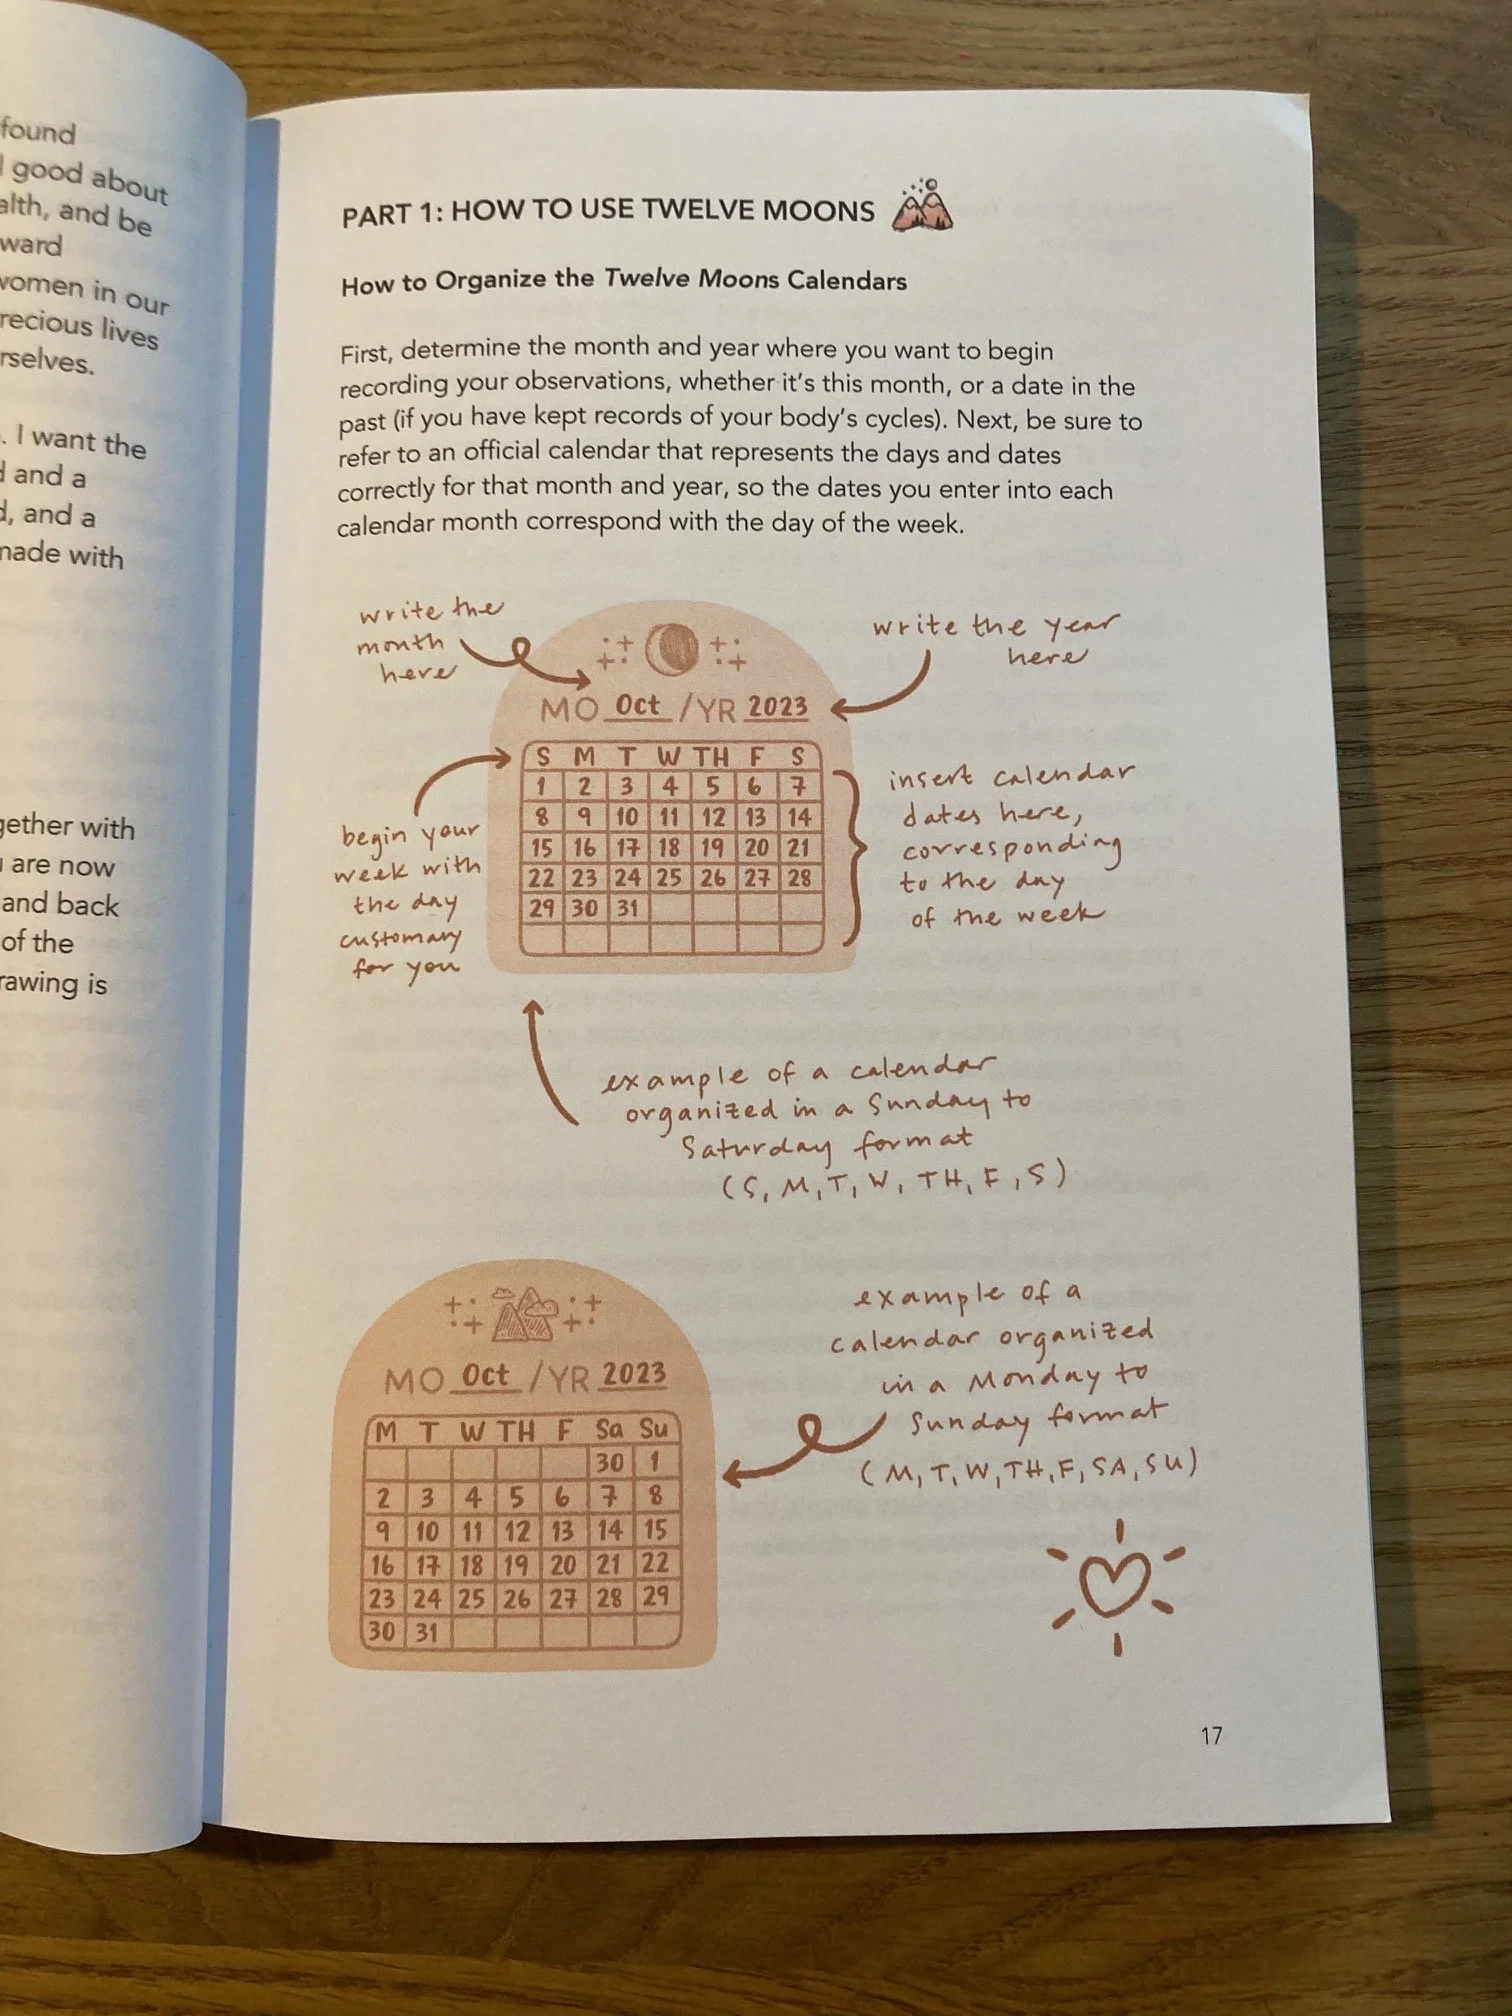 found
good about
alth, and be
ward
women in our
recious lives
rselves.
. I want the
and a
d, and a
made with
gether with
are now
and back
of the
rawing is
PART 1: HOW TO USE TWELVE MOONS
How to Organize the Twelve Moons Calendars
First, determine the month and year where you want to begin
recording your observations, whether it's this month, or a date in the
past (if you have kept records of your body's cycles). Next, be sure to
refer to an official calendar that represents the days and dates
correctly for that month and year, so the dates you enter into each
calendar month correspond with the day of the week.
write the
month
here
write the year
here
MO Oct /YR 2023
S M T W TH F S
1 2 3 4 5 6 7
8 9 10 11 12 13 14
15 16 17 18 19 20 21
22 23 24 25 26 27 28
29 30 31
begin your
week with
the day
customary
for you
insert calendar
dates here,
corresponding
to the day
of the week
example of a calendar
organized in a Sunday to
Saturday format
(S, M, T, W, TH, F, S)
MO Oct /YR 2023
M T W TH F Sa Su
30 1
2 3 4 5 6 7 8
9 10 11 12 13 14 15
16 17 18 19 20 21 22
23 24 25 26 27 28 29
30 31
example of a
calendar organized
in a Monday to
Sunday format
(M, T, W, TH, F, SA, SU)
17